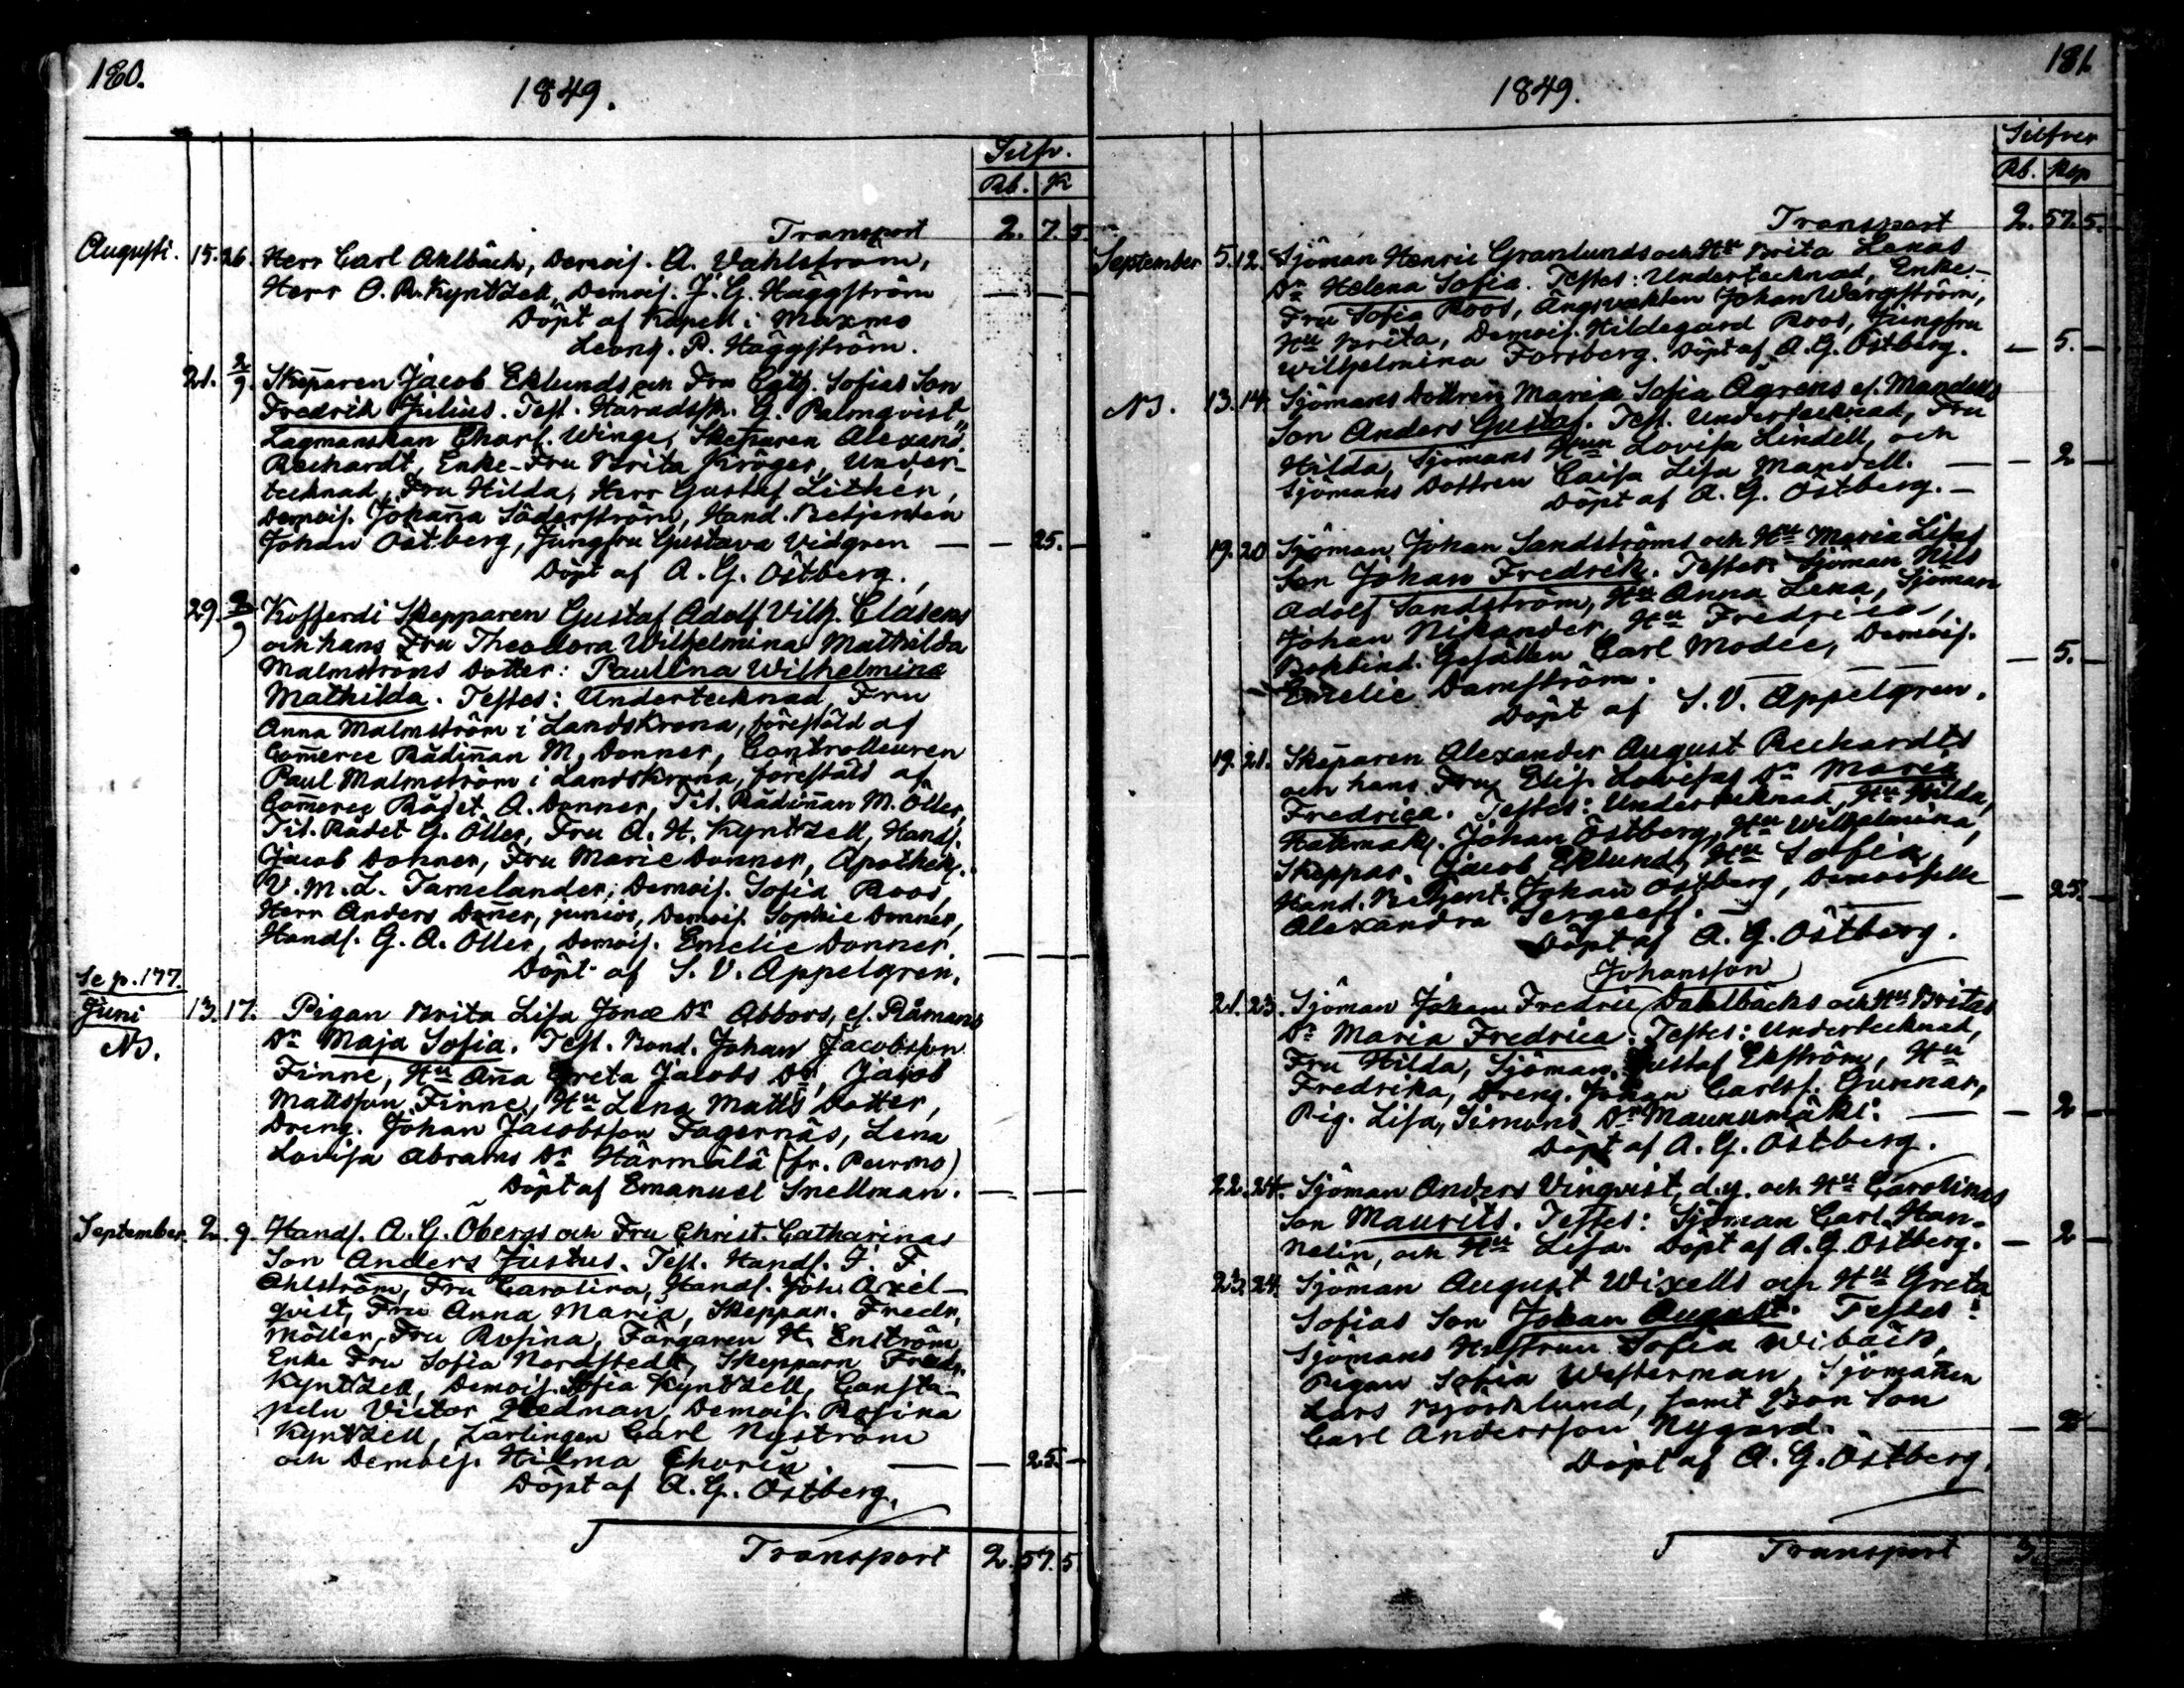 180.
1849.
Silfv.
Rb. K
Transport 2. 7. 5.
Augusti. 15. 26. Herr Carl Ahlbäck, Demois. A. Vahlström,
Herr O. R. Kyntzell, Demois. J. G. Häggström — — —
Döpt af Kapell. i Maxmo
Leong. R. Häggström.
21. 2/9 Skeparen Jacob Eklunds och Fru Cath. Sofias Son
Fredrik Julius. Test. Häradssk. G. Palmqvist,
Lagmanskan Charl. Winge, Skeparen Alexand.
Rechardt, Enke-Fru Brita Kröger, Under-
tecknad, Fru Hilda, Herr Gustaf Lithén,
Demois. Johan̄a Söderström, Hand. Betjenten
Johan Östberg, Jungfru Gustava Vidgren — — 25. —
Döpt af A. G. Östberg.
29. 2/9 Kofferdi Skepparen Gustaf Adolf Vilh. Clasens
och hans Fru Theodora Wilhelmina Mathilda
Malmströms Dotter: Paulina Wilhelmina
Mathilda. Testes: Undertecknad, Fru
Anna Malmström i Landskrona, föreståld af
Com̄erce Rådin̄an M. Donner, Controlleuren
Paul Malmström i Landskrona, föreståld af
Com̄erce Rådet A. Donner, Tit. Rådin̄an M. Öller,
Tit. Rådet G. Öller, Fru A. H. Kyntzell, Handl.
Jacob Donner, Fru Marie Donner, Apothek.
V. M. L. Tamelander, Demois. Sofia Roos,
Herr Anders Don̄er, junior, Demois. Sophie Donner,
Handl. G. A. Öller, Demois. Emelie Donner — — —
Döpt af S. V. Appelgren.
Se p. 177.
Juni 13. 17. Pigan Brita Lisa Jonæ Dr Abbors, ef. Råmans
Ns. Dr Maja Sofia. Test. Bond. Johan Jacobsson
Finne, Hu An̄a Greta Jacobs Dr, Jacob
Mattsson Finne, Hu Lena Matts Dotter,
Dreng. Johan Jacobsson Fagernäs, Lena
Lovisa Abrams Dr Härmälä (fr. Purmo)
Döpt af Emanuel Snellman. — — —
September 2. 9. Handl. A. G. Öbergs och Fru Christ. Catharinas
Son Anders Justus. Test. Handl. J. F.
Ahlström, Fru Carolina, Handl. Joh. Axel-
qvist, Fru Anna Maria, Skeppar. Fredr.
Möller, Fru Rosina, Färgaren H. Enström,
Enke Fru Sofia Nordstedt, Skepparn Fredr.
Kyntzell, Demois. Sofia Kyntzell, Consta-
peln Victor Hedman, Demois. Rosina
Kyntzell, Lärlingen Carl Nyström
och Demois. Hilma Chorin. — — 25. —
Döpt af A. G. Östberg.
Transport 2. 57. 5.
181.
1849.
Silfver
Rb. Kop
Transport 2. 57. 5.
September 5. 12. Sjöman Henric Granlunds och Hu Brita Lenas
Dr Helena Sofia. Testes: Undertecknad, Enke-
Fru Sofia Roos, Ängsvakten Johan Wargström,
Hu Brita, Demois. Hildegard Roos, Jungfru
Wilhelmina Forsberg. Döpt af A. G. Östberg. — 5. —
Ns. 13. 14. Sjömans Dottren Maria Sofia Agrens ef. Mandells
Son Anders Gustaf. Test. Undertecknad, Fru
Hilda, Sjömans Hun Lovisa Lindell, och
Sjömans Dottren Caisa Lisa Mandell. — — 2 —
Döpt af A. G. Östberg. —
19. 20. Sjöman Johan Sandströms och Hu Maria Lisas
Son Johan Fredrik. Testes: Sjöman Nils
Adolf Sandström, Hu Anna Lena, Sjöman
Johan Nikander, Hu Fredrica,
Bokbind. Gesällen Carl Modée, Demois.
Emelie Damström. — 5. —
Döpt af S. V. Appelgren.
19. 21. Skeparen Alexander August Rechardts
och hans Fru Elis. Lovisas Dr Maria
Fredrica. Testes: Undertecknad, Hu Hilda,
Hattmak. Johan Östberg, Hu Wilhelmina,
Skeppar. Jacob Eklund, Hu Sofia,
Hand. Betjent. Johan Östberg, Demoiselle
Alexandra Sergeeff. — — 25. —
Döpt af A. G. Östberg.
Johansson
21. 23. Sjöman Johan Fredric Dahlbäcks och Hu Britas
Dr Maria Fredrica. Testes: Undertecknad,
Fru Hilda, Sjöman Gustaf Ekström, Hu
Fredrika, Dreng. Johan Carlss. Gunnar,
Pig. Lisa, Simons Dr Maunumäki. — — 2 —
Döpt af A. G. Östberg.
22. 24. Sjöman Anders Vinqvist, d.y. och Hu Carolinas
Son Maurits. Testes: Sjöman Carl Han-
nelin, och Hu Lisa. Döpt af A. G. Östberg. — 2 —
23. 24. Sjöman August Wixells och Hu Greta
Sofias Son Johan August. Testes:
Sjömans Hustrun Sofia Wibäck,
Pigan Sofia Westerman, Sjömannen
Lars Björklund, samt Bon Son
Carl Andersson Nygard. — — 2 —
Döpt af A. G. Östberg.
Transport 3.